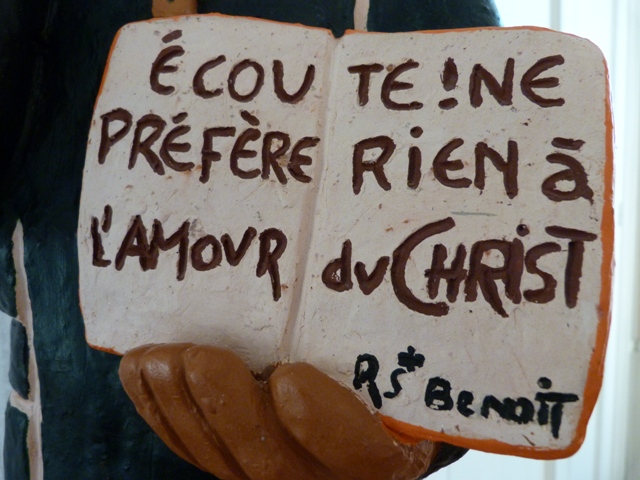 ÉCOUTE! NE
PRÉFÈRE RIEN à
L'AMOUR du CHRIST
RSt BENOIT